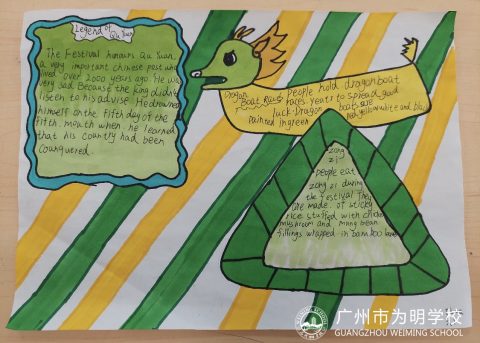 Legend of
Qu Yuan
The Festival honours Qu Yuan,
a very important chinese poet who
lived over 2000 years ago. He was
very sad. Because the king didn't
listen to his advise. He drowned
himself on the fifth day of the
fifth mouth when he learned
that his country had been
Counquered.
Dragon
Boat Races
People hold dragonboat
races yearly to spread good
luck. Dragon boats are
Painted in green, red, yellow white and black
zong
zi
people eat
zong zi during
the festival They
are made of sticky
rice stuffed with chicken
mushroom and mung bean
fillings wrapped in bamboo
广州市为明学校
GUANGZHOU WEIMING SCHOOL